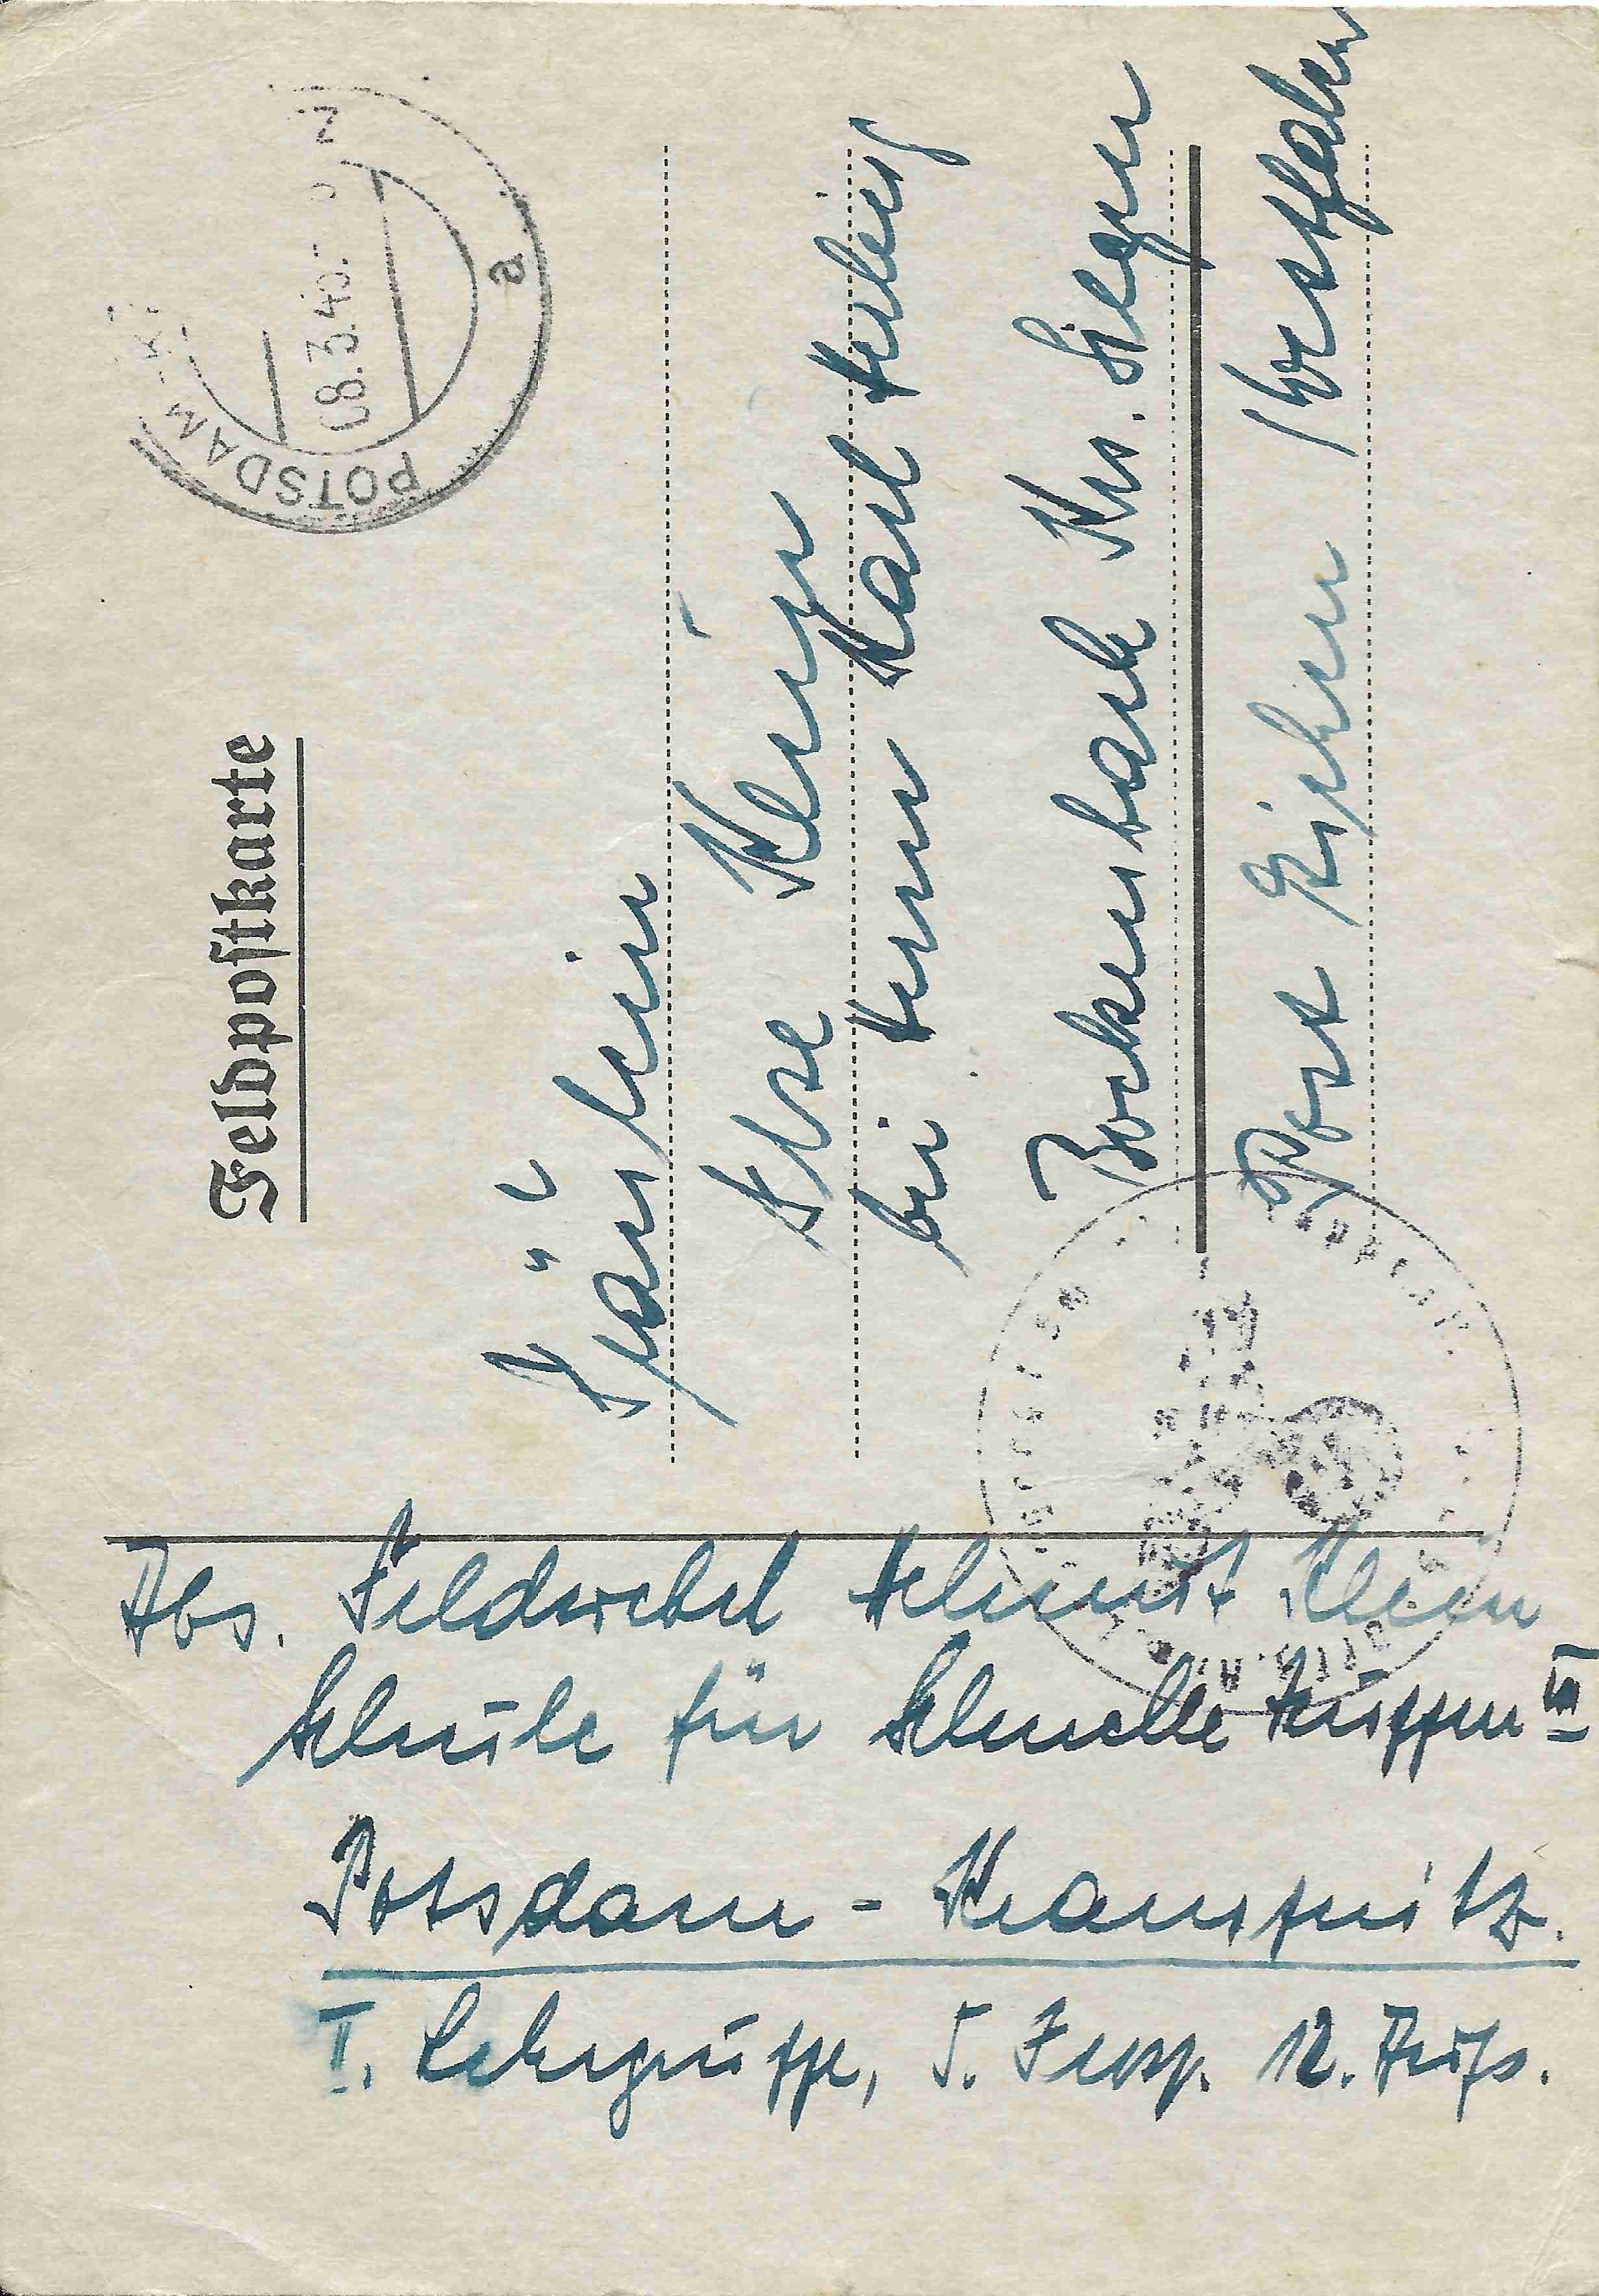 Feldpostkarte
POTSDAM-KR
08.3.40
a
Fräulein
Ilse Klein
bei Herrn Karl Hebig
Bockenbach Krs. Siegen
Post Eichen / Westfalen
Abs. Feldwebel Helmut Klein
Schule für Schnelle Truppen
Potsdam - Krampnitz.
I. Lehrgruppe, 5. Insp. 12. Aufs.